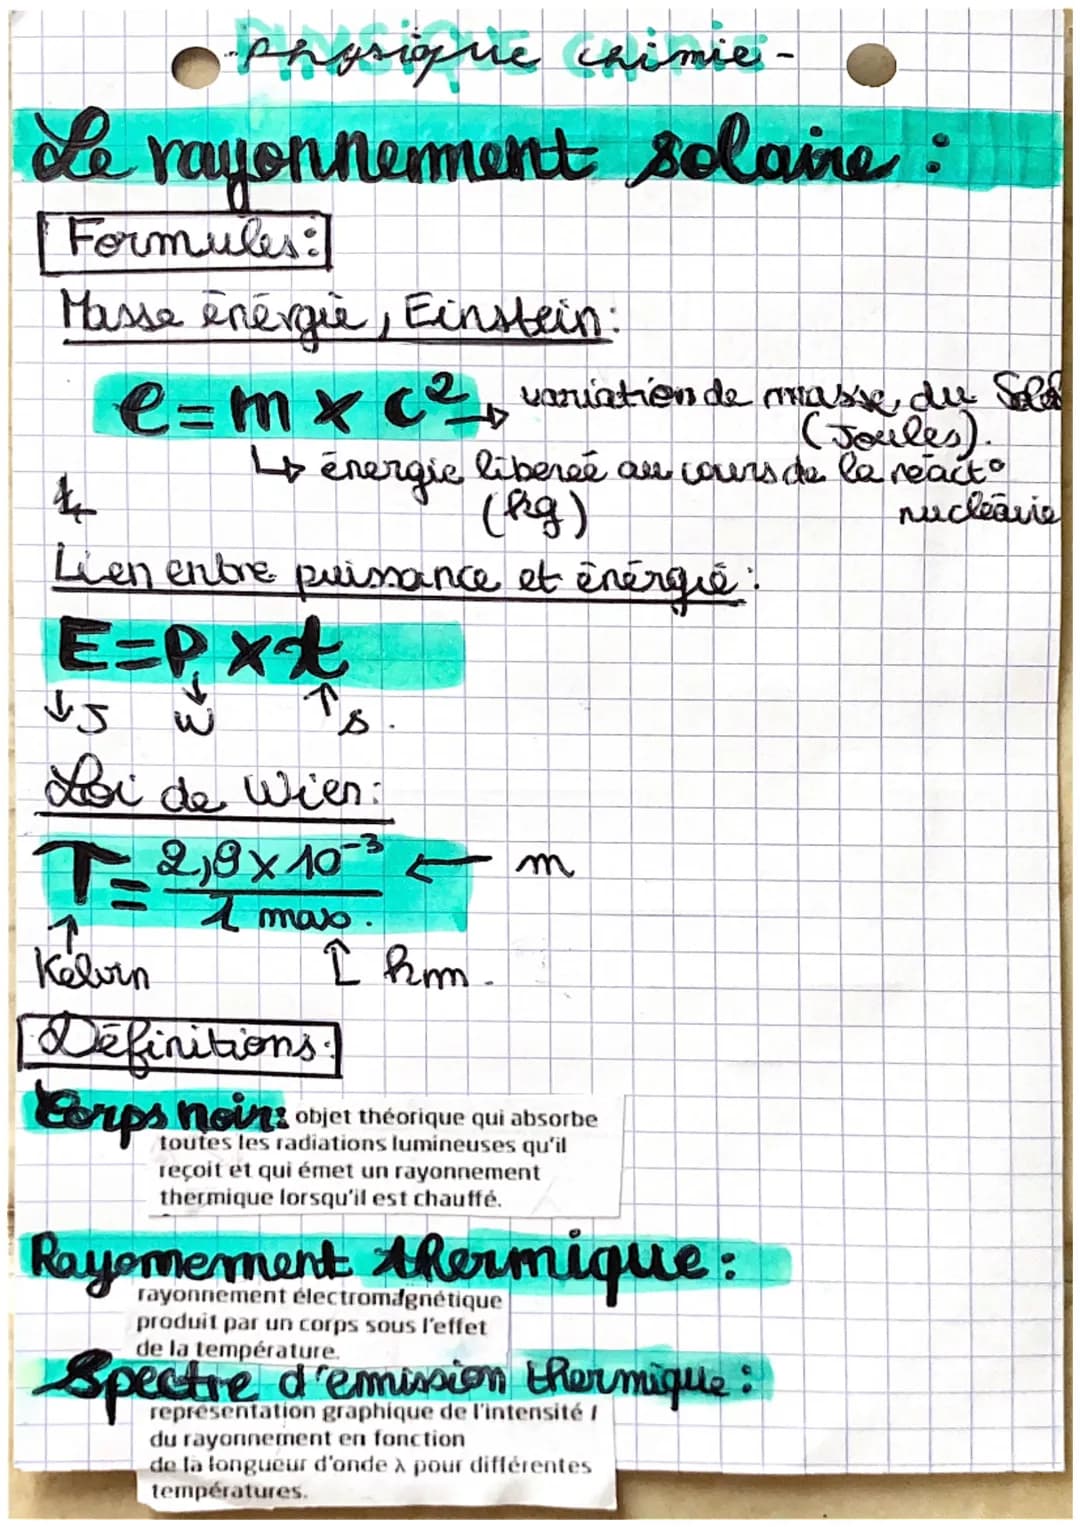 - Physique chimie -
Le rayonnement solaire :
Formules :
Masse énérgie, Einstein :
e = m x c² → variation de masse du Soleil
(Joules).
↳ énergie libereé au cours de la réact°
(kg) nucléaire
Lien entre puissance et énérgie :
E = P x t
↓ J ↓ W ↑ s.
Loi de Wien :
T = 2,9 x 10⁻³ ← m
λ max.
↑ Kelvin ↑ hm.
Définitions :
Corps noir : objet théorique qui absorbe
toutes les radiations lumineuses qu'il
reçoit et qui émet un rayonnement
thermique lorsqu'il est chauffé.
Rayonnement thermique :
rayonnement électromagnétique
produit par un corps sous l'effet
de la température.
Spectre d'émission thermique :
représentation graphique de l'intensité I
du rayonnement en fonction
de la longueur d'onde λ pour différentes
températures.